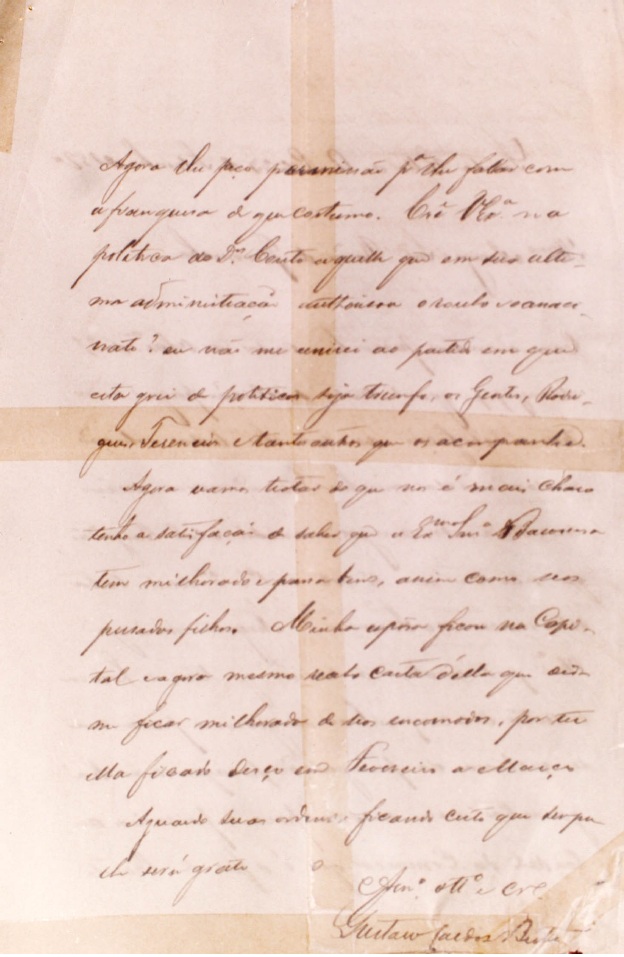 Agora lhe peço permissão pª lhe fallar com
a franqueza de que costumo. Crê V.Exª na
politica do Dr. Couto aquelle que em sua ulti-
ma administração authorisou o roubo e o assassi-
nato? eu não me unirei ao partido em que
esta grei de politicos seja triunfo, os Gentes, Rodri-
gues, Terencios e tantos outros que os acompanhe.
Agora vamos tratar do que nos é mais charo
tenho a satisfação de saber que a Exma Snrª
tem milhorado e passa bem, assim como seos
presados filhos. Minha espôsa ficou na Capi-
tal e agora mesmo recebo carta d'ella que
me ficar milhorada de seos encomodos, por ter
ella ficado desço em Fevereiro a Março
Aguardo suas ordens, ficando certo que
será grato
Amº attº e Crº
Gustavo